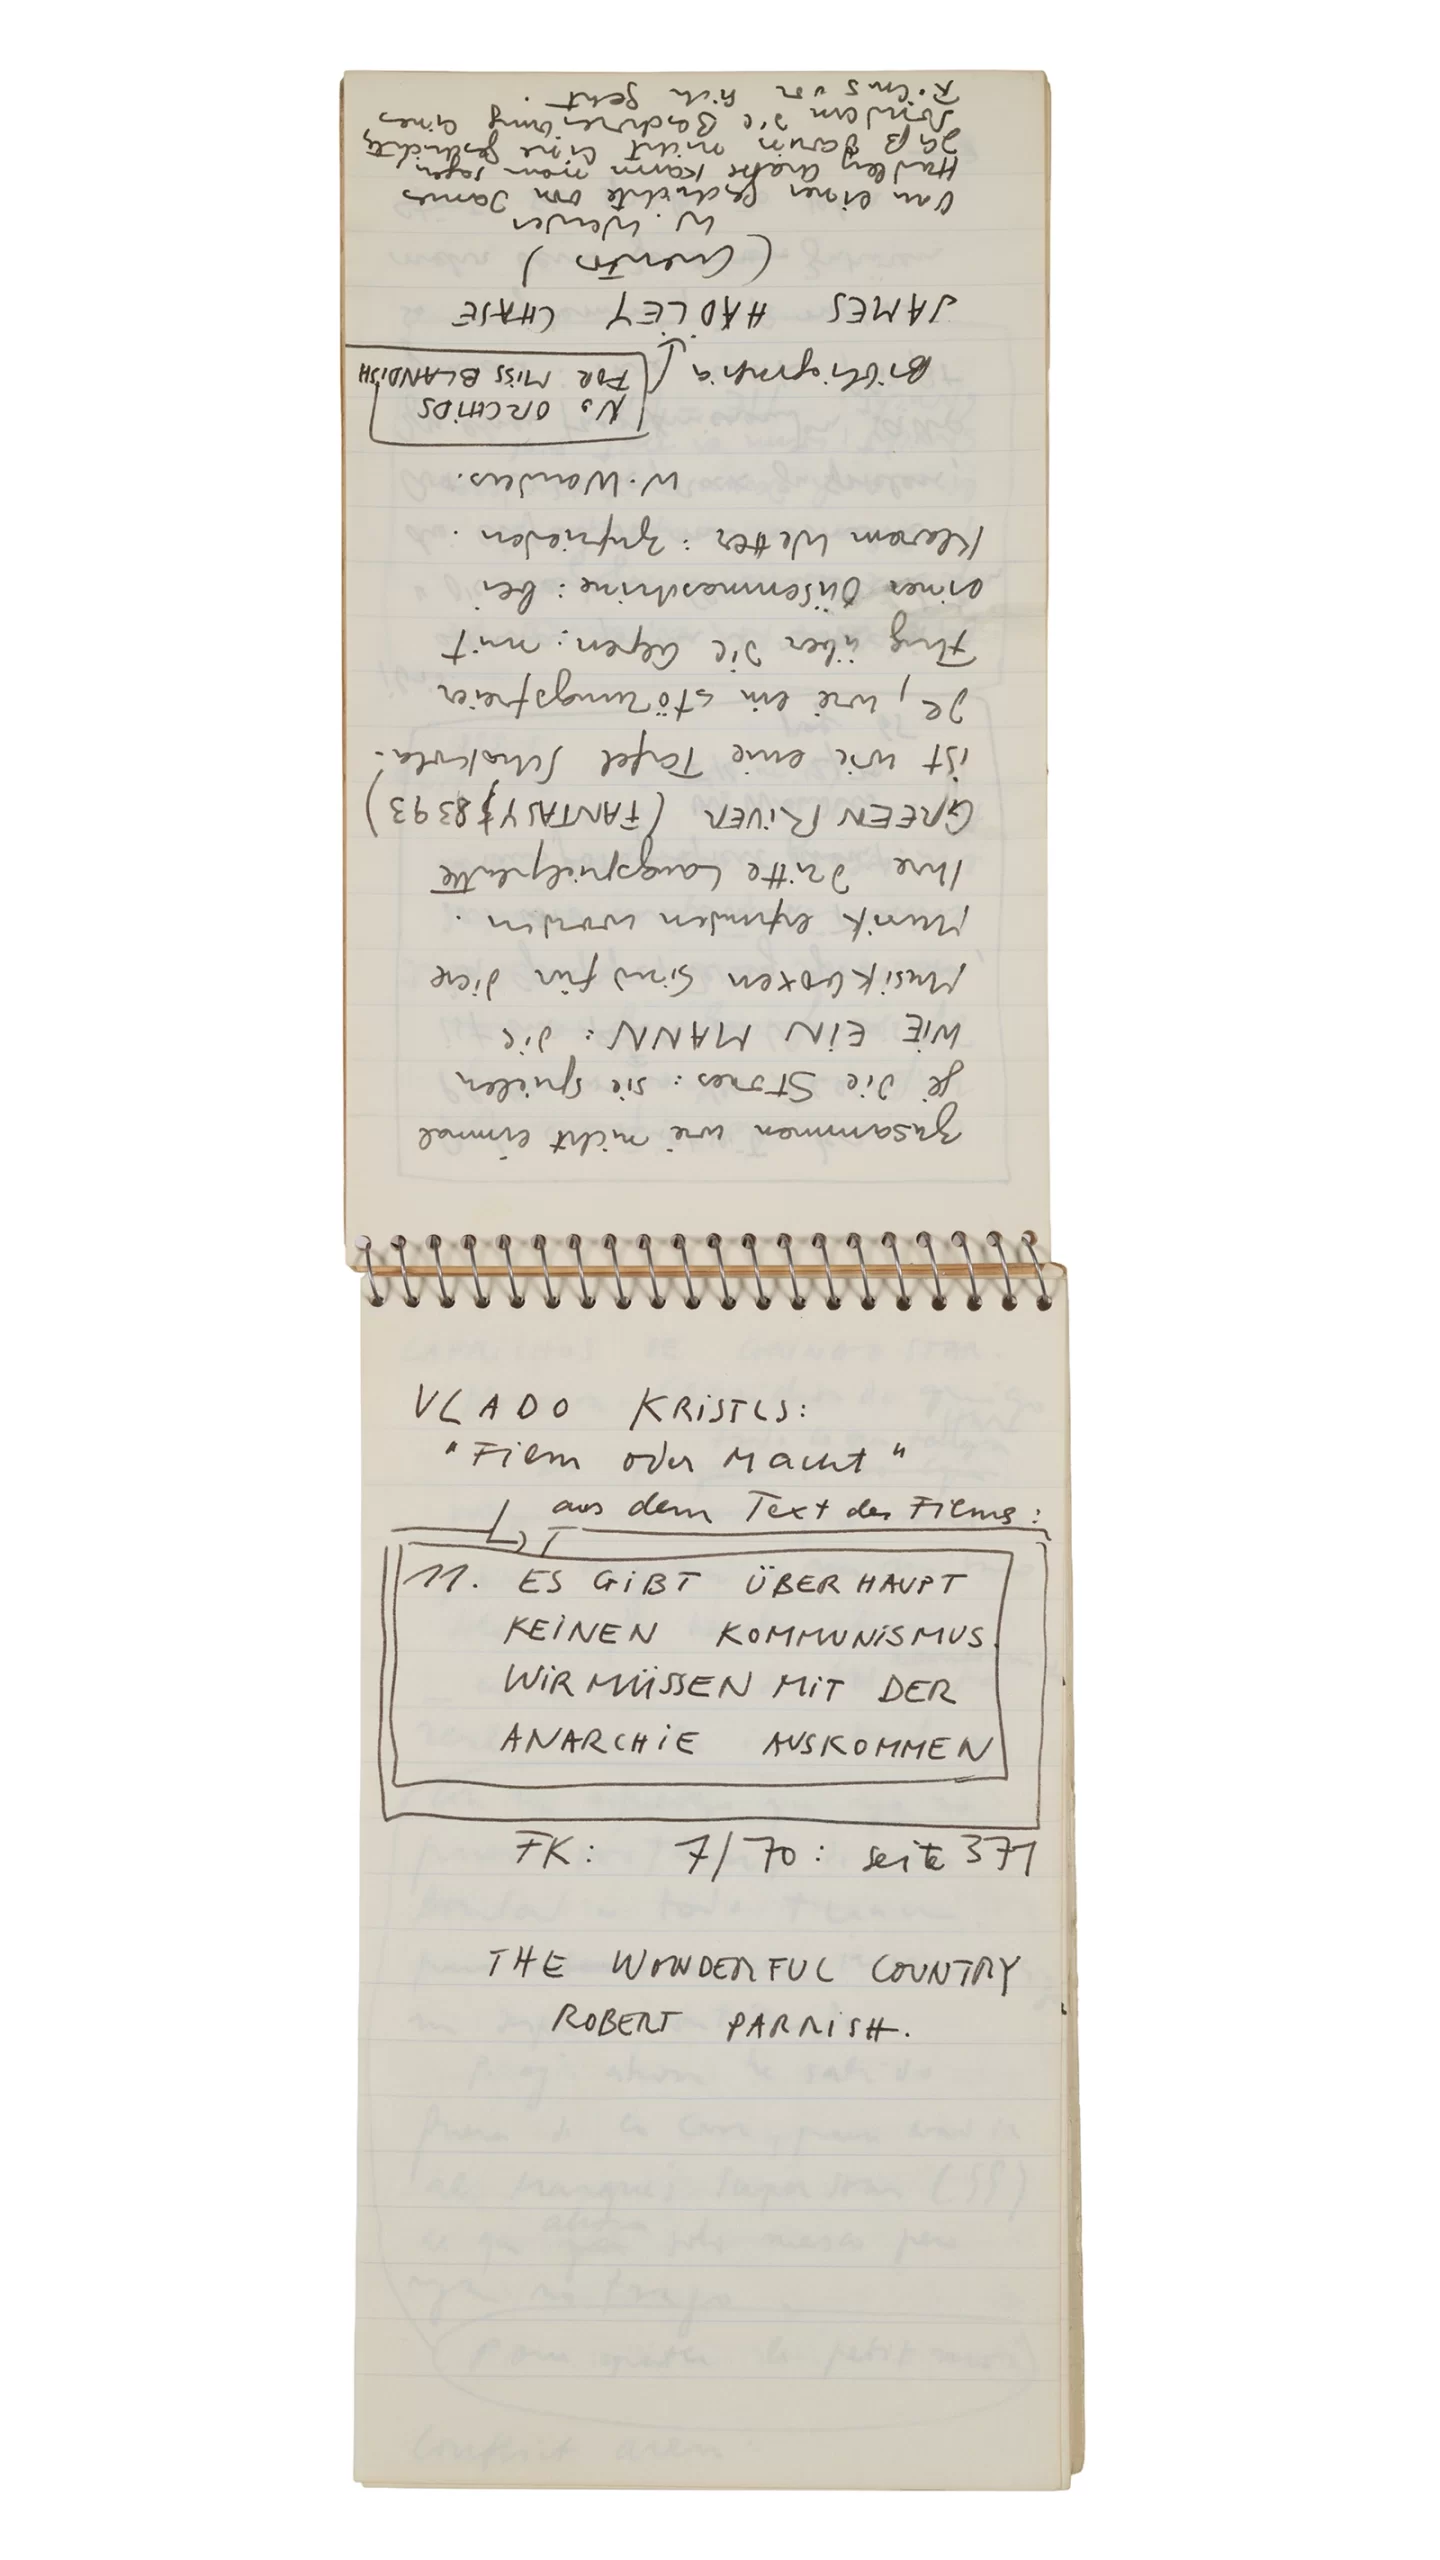 zusammen wie nicht einmal
je die Stones: sie spielen
WIE EIN MANN: die
Musikboxen sind für diese
Musik erfunden worden.
Ihre dritte Langspielplatte
GREEN RIVER (FANTASY 8393)
ist wie eine Tafel Schokola-
de, wie ein störungsfreier
Flug über die Alpen: mit
einer Düsenmaschine: bei
klarem Wetter: zufrieden.
W. Wenders.
No ORCHIDS
FOR MISS BLANDISH
Bibliografia
JAMES HADLEY CHASE
(Cuento)
W. Wender
Von einer Geschichte von James
Hadley Chase kann man sagen,
daß darin nicht eine Geschichte,
sondern die Beschreibung eines
Films vor sich geht.
VLADO KRISTLS:
"Film oder Macht"
aus dem Text des Films:
11. ES GIBT ÜBERHAUPT
KEINEN KOMMUNISMUS.
WIR MÜSSEN MIT DER
ANARCHIE AUSKOMMEN
FK: 7/70: seite 371
THE WONDERFUL COUNTRY
ROBERT PARRISH.